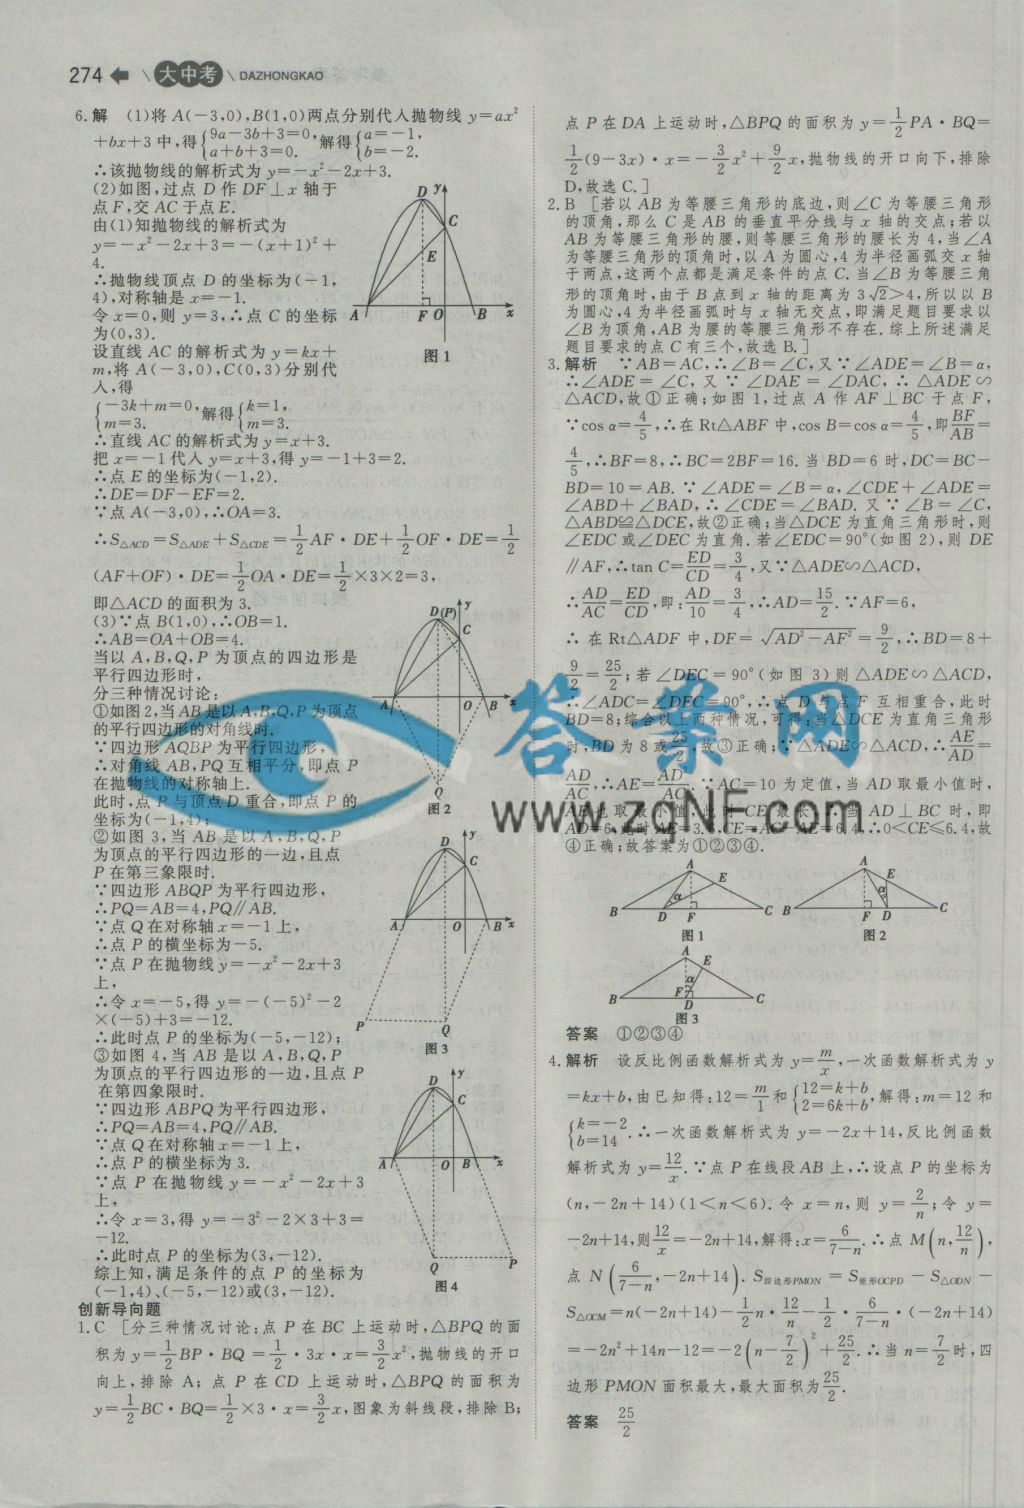 274 大中考 DAZHONGKAO
6.解 (1)将 A(－3,0),B(1,0)两点分别代入抛物线 y=ax²
+bx+3 中,得{9a－3b+3=0, a+b+3=0. 解得{a=－1, b=－2.
∴该抛物线的解析式为 y=－x²－2x+3.
(2)如图,过点 D 作 DF⊥x 轴于
点 F,交 AC 于点 E.
由(1)知抛物线的解析式为
y=－x²－2x+3=－(x+1)²+
4.
∴抛物线顶点 D 的坐标为(－1,
4),对称轴是 x=－1.
令 x=0,则 y=3,∴点 C 的坐标
为(0,3).
设直线 AC 的解析式为 y=kx+
m,将 A(－3,0),C(0,3)分别代
入,得
{－3k+m=0, m=3. 解得{k=1, m=3.
∴直线 AC 的解析式为 y=x+3.
把 x=－1代入 y=x+3,得 y=－1+3=2.
∴点 E 的坐标为(－1,2).
∴DE=DF－EF=2.
∵点 A(－3,0),∴OA=3.
∴S△ACD=S△ADE+S△CDE=1/2 AF·DE+1/2 OF·DE=1/2
(AF+OF)·DE=1/2 OA·DE=1/2×3×2=3,
即△ACD 的面积为 3.
(3)∵点 B(1,0),∴OB=1.
∴AB=OA+OB=4.
当以 A,B,Q,P 为顶点的四边形是
平行四边形时,
分三种情况讨论:
①如图2,当 AB 是以 A,B,Q,P 为顶点
的平行四边形的对角线时.
∵四边形 AQBP 为平行四边形,
∴对角线 AB,PQ 互相平分,即点 P
在抛物线的对称轴上.
此时,点 P 与顶点 D 重合,即点 P 的
坐标为(－1,4);
②如图 3,当 AB 是以 A,B,Q,P
为顶点的平行四边形的一边,且点
P 在第三象限时.
∵四边形 ABQP 为平行四边形,
∴PQ=AB=4,PQ∥AB.
∵点 Q 在对称轴 x=－1 上,
∴点 P 的横坐标为－5.
∵点 P 在抛物线 y=－x²－2x+3
上,
∴令 x=－5,得 y=－(－5)²－2
×(－5)+3=－12.
∴此时点 P 的坐标为(－5,－12);
③如图 4,当 AB 是以 A,B,Q,P
为顶点的平行四边形的一边,且点 P
在第四象限时.
∵四边形 ABPQ 为平行四边形,
∴PQ=AB=4,PQ∥AB.
∵点 Q 在对称轴 x=－1 上,
∴点 P 的横坐标为 3.
∵点 P 在抛物线 y=－x²－2x+3
上,
∴令 x=3,得 y=－3²－2×3+3=
－12.
∴此时点 P 的坐标为(3,－12).
综上知,满足条件的点 P 的坐标为
(－1,4)、(－5,－12)或(3,－12).
D y C E A F O B x
图 1
D(P) y C A O B x Q
图 2
D y C A O B x P Q
图 3
D y C A O B x Q P
图 4
创新导向题
1.C [分三种情况讨论:点 P 在 BC 上运动时,△BPQ 的面
积为 y=1/2 BP·BQ=1/2·3x·x=3/2 x²,抛物线的开口
向上,排除 A; 点 P 在 CD 上运动时,△BPQ 的面积为
y=1/2 BC·BQ=1/2×3·x=3/2 x,图象为斜线段,排除 B;
点 P 在 DA 上运动时,△BPQ 的面积为 y=1/2 PA·BQ=
1/2(9－3x)·x=－3/2 x²+9/2 x,抛物线的开口向下,排除
D,故选 C.]
2.B [若以 AB 为等腰三角形的底边,则∠C 为等腰三角形
的顶角,那么 C 是 AB 的垂直平分线与 x 轴的交点;若以
AB 为等腰三角形的腰,则等腰三角形的腰长为 4,当∠A
为等腰三角形的顶角时,以 A 为圆心,4 为半径画弧交 x 轴
于两点,这两个点都是满足条件的点 C.当∠B 为等腰三角
形的顶角时,由于 B 点到 x 轴的距离为 3√2>4,所以以 B
为圆心,4 为半径画弧时与 x 轴无交点,即满足题目要求以
∠B 为顶角,AB 为腰的等腰三角形不存在.综上所述满足
题目要求的点 C 有三个,故选 B.]
3.解析 ∵AB=AC,∴∠B=∠C,又∵∠ADE=∠B=α,
∴∠ADE=∠C,又∵∠DAE=∠DAC,∴△ADE∽
△ACD,故①正确;如图 1,过点 A 作 AF⊥BC 于点 F,
∵cos α=4/5,∴在 Rt△ABF 中,cos B=cos α=4/5,即BF/AB=
4/5,∴BF=8,∴BC=2BF=16.当 BD=6 时,DC=BC－
BD=10=AB.∵∠ADE=∠B=α,∠CDE+∠ADE=
∠ABD+∠BAD,∴∠CDE=∠BAD.又∵∠B=∠C,
△ABD≌△DCE,故②正确;当△DCE 为直角三角形时,则
∠EDC 或∠DEC 为直角.若∠EDC=90°(如图 2),则 DE
∥AF,∴tan C=ED/CD=3/4,又∵△ADE∽△ACD,
∴AD/AC=ED/CD,即:AD/10=3/4,∴AD=15/2.∵AF=6,
∴ 在 Rt△ADF 中,DF=√(AD²－AF²)=9/2,∴BD=8+
9/2=25/2;若∠DEC=90°(如图 3)则△ADE∽△ACD,
∴∠ADC=∠DEC=90°,∴点 D 与点 F 互相重合,此时
BD=8;综合以上两种情况,可得:当△DCE 为直角三角形
时,BD 为 8 或25/2,故③正确;∵△ADE∽△ACD,∴AE/AD=
AD/AC,∴AE=AD²/AC,∵AC=10 为定值,当 AD 取最小值时,
AE 也取最小值,此时 CE 最长,∴当 AD⊥BC 时,即
AD=6,此时 AE=3.6,CE=AC－AE=6.4,∴0<CE≤6.4,故
④正确;故答案为①②③④.
A E α B D F C
图 1
A E α B F D C
图 2
A E α F B D C
图 3
答案 ①②③④
4.解析 设反比例函数解析式为 y=m/x,一次函数解析式为 y
=kx+b,由已知得:12=m/1 和{12=k+b 2=6k+b,解得:m=12 和
{k=－2 b=14.∴一次函数解析式为 y=－2x+14,反比例函数
解析式为 y=12/x.∵点 P 在线段 AB 上,∴设点 P 的坐标为
(n,－2n+14)(1<n<6).令 x=n,则 y=2/n;令 y=
－2n+14,则12/x=－2n+14,解得:x=6/(7－n).∴点 M(n,12/n),
点 N(6/(7－n),－2n+14).S四边形PMON=S矩形OCPD－S△ODN－
S△OCM=n(－2n+14)－1/2 n·12/n－1/2·6/(7－n)·(－2n+14)
=－2n²+14n－12=－2(n－7/2)²+25/2.∴当 n=7/2时,四
边形 PMON 面积最大,最大面积为25/2.
答案 25/2
答案网
www.zqNF.com